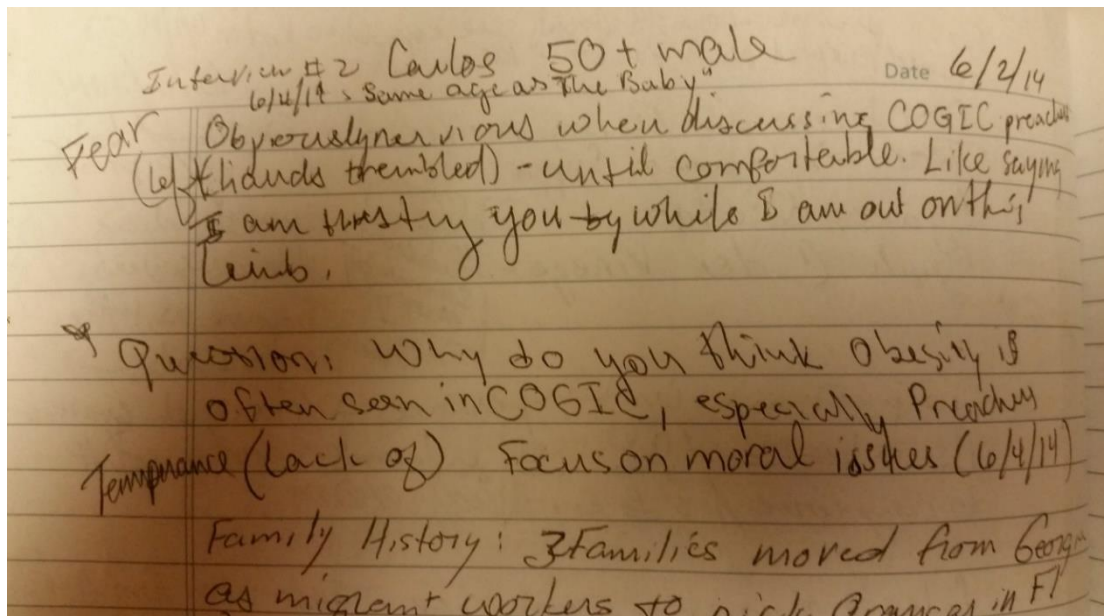 Interview #2 Carlos 50+ male Date 6/2/14
6/4/14 Same age as "The Baby"
Fear Obviously nervious when discussing COGIC preacher
(left hands trembled) - until comfortable. Like saying
I am you while I am out on this
limb.
* Question: Why do you think Obesity is
often seen in COGIC, especially Preachers
Temperance (Lack of) Focus on moral issues (6/4/14)
Family History: 3 Families moved from Georgia
as migrant workers to pick Oranges in Fl